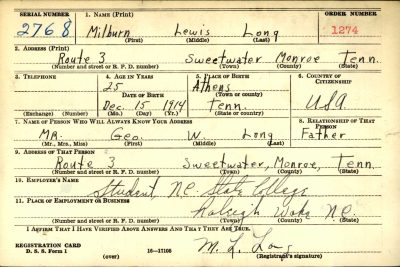 SERIAL NUMBER 1. NAME (Print) ORDER NUMBER
2768 Milburn Lewis Long 1274
(First) (Middle) (Last)
2. ADDRESS (Print)
Route 3 Sweetwater Monroe Tenn.
(Number and street or R. F. D. number) (Town) (County) (State)
3. TELEPHONE 4. AGE IN YEARS 5. PLACE OF BIRTH 6. COUNTRY OF CITIZENSHIP
25 Athens
DATE OF BIRTH (Town)
Dec. 15 1914 Tenn. USA
(Exchange) (Number) (Mo.) (Day) (Yr.) (State or country)
7. NAME OF PERSON WHO WILL ALWAYS KNOW YOUR ADDRESS 8. RELATIONSHIP OF THAT PERSON
MR. Geo. W. Long Father
(Mr., Mrs., Miss) (First) (Middle) (Last)
9. ADDRESS OF THAT PERSON
Route 3 Sweetwater, Monroe, Tenn.
(Number and street or R. F. D. number) (Town) (County) (State)
10. EMPLOYER'S NAME
Student, N.C. State College
11. PLACE OF EMPLOYMENT OR BUSINESS
Raleigh Wake N.C.
(Number and street or R. F. D. number) (Town) (County) (State)
I AFFIRM THAT I HAVE VERIFIED ABOVE ANSWERS AND THAT THEY ARE TRUE.
REGISTRATION CARD
D. S. S. Form 1 16—17105 M. L. Long
(over) (Registrant's signature)